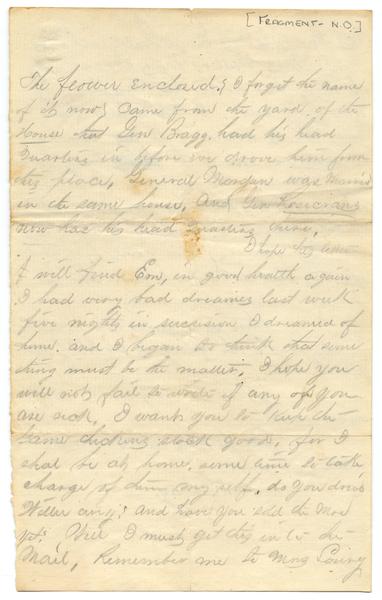 [FRAGMENT - N.D.]
The flower enclosed, I forget the name
of it now, Came from the yard of the
House that Gen Bragg, had his head
Quarters in before we drove him from
this place, General Morgan was Married
in the same house, And Gen Rosicrans
now has his head Quarters there,
I hope this letter
will find Em, in good health again
I had very bad dreames last week
five nights in sucession I dreamed of
home. and I began to think that some
thing must be the matter, I hope you
will not fail to write if any of you
are sick, I want you to keep the
same chicking stock good, for I
shal be at home some time to take
charge of them my self, do you
any? And have you sold the
yet? Well I must get this in to the
Mail, Remember me to